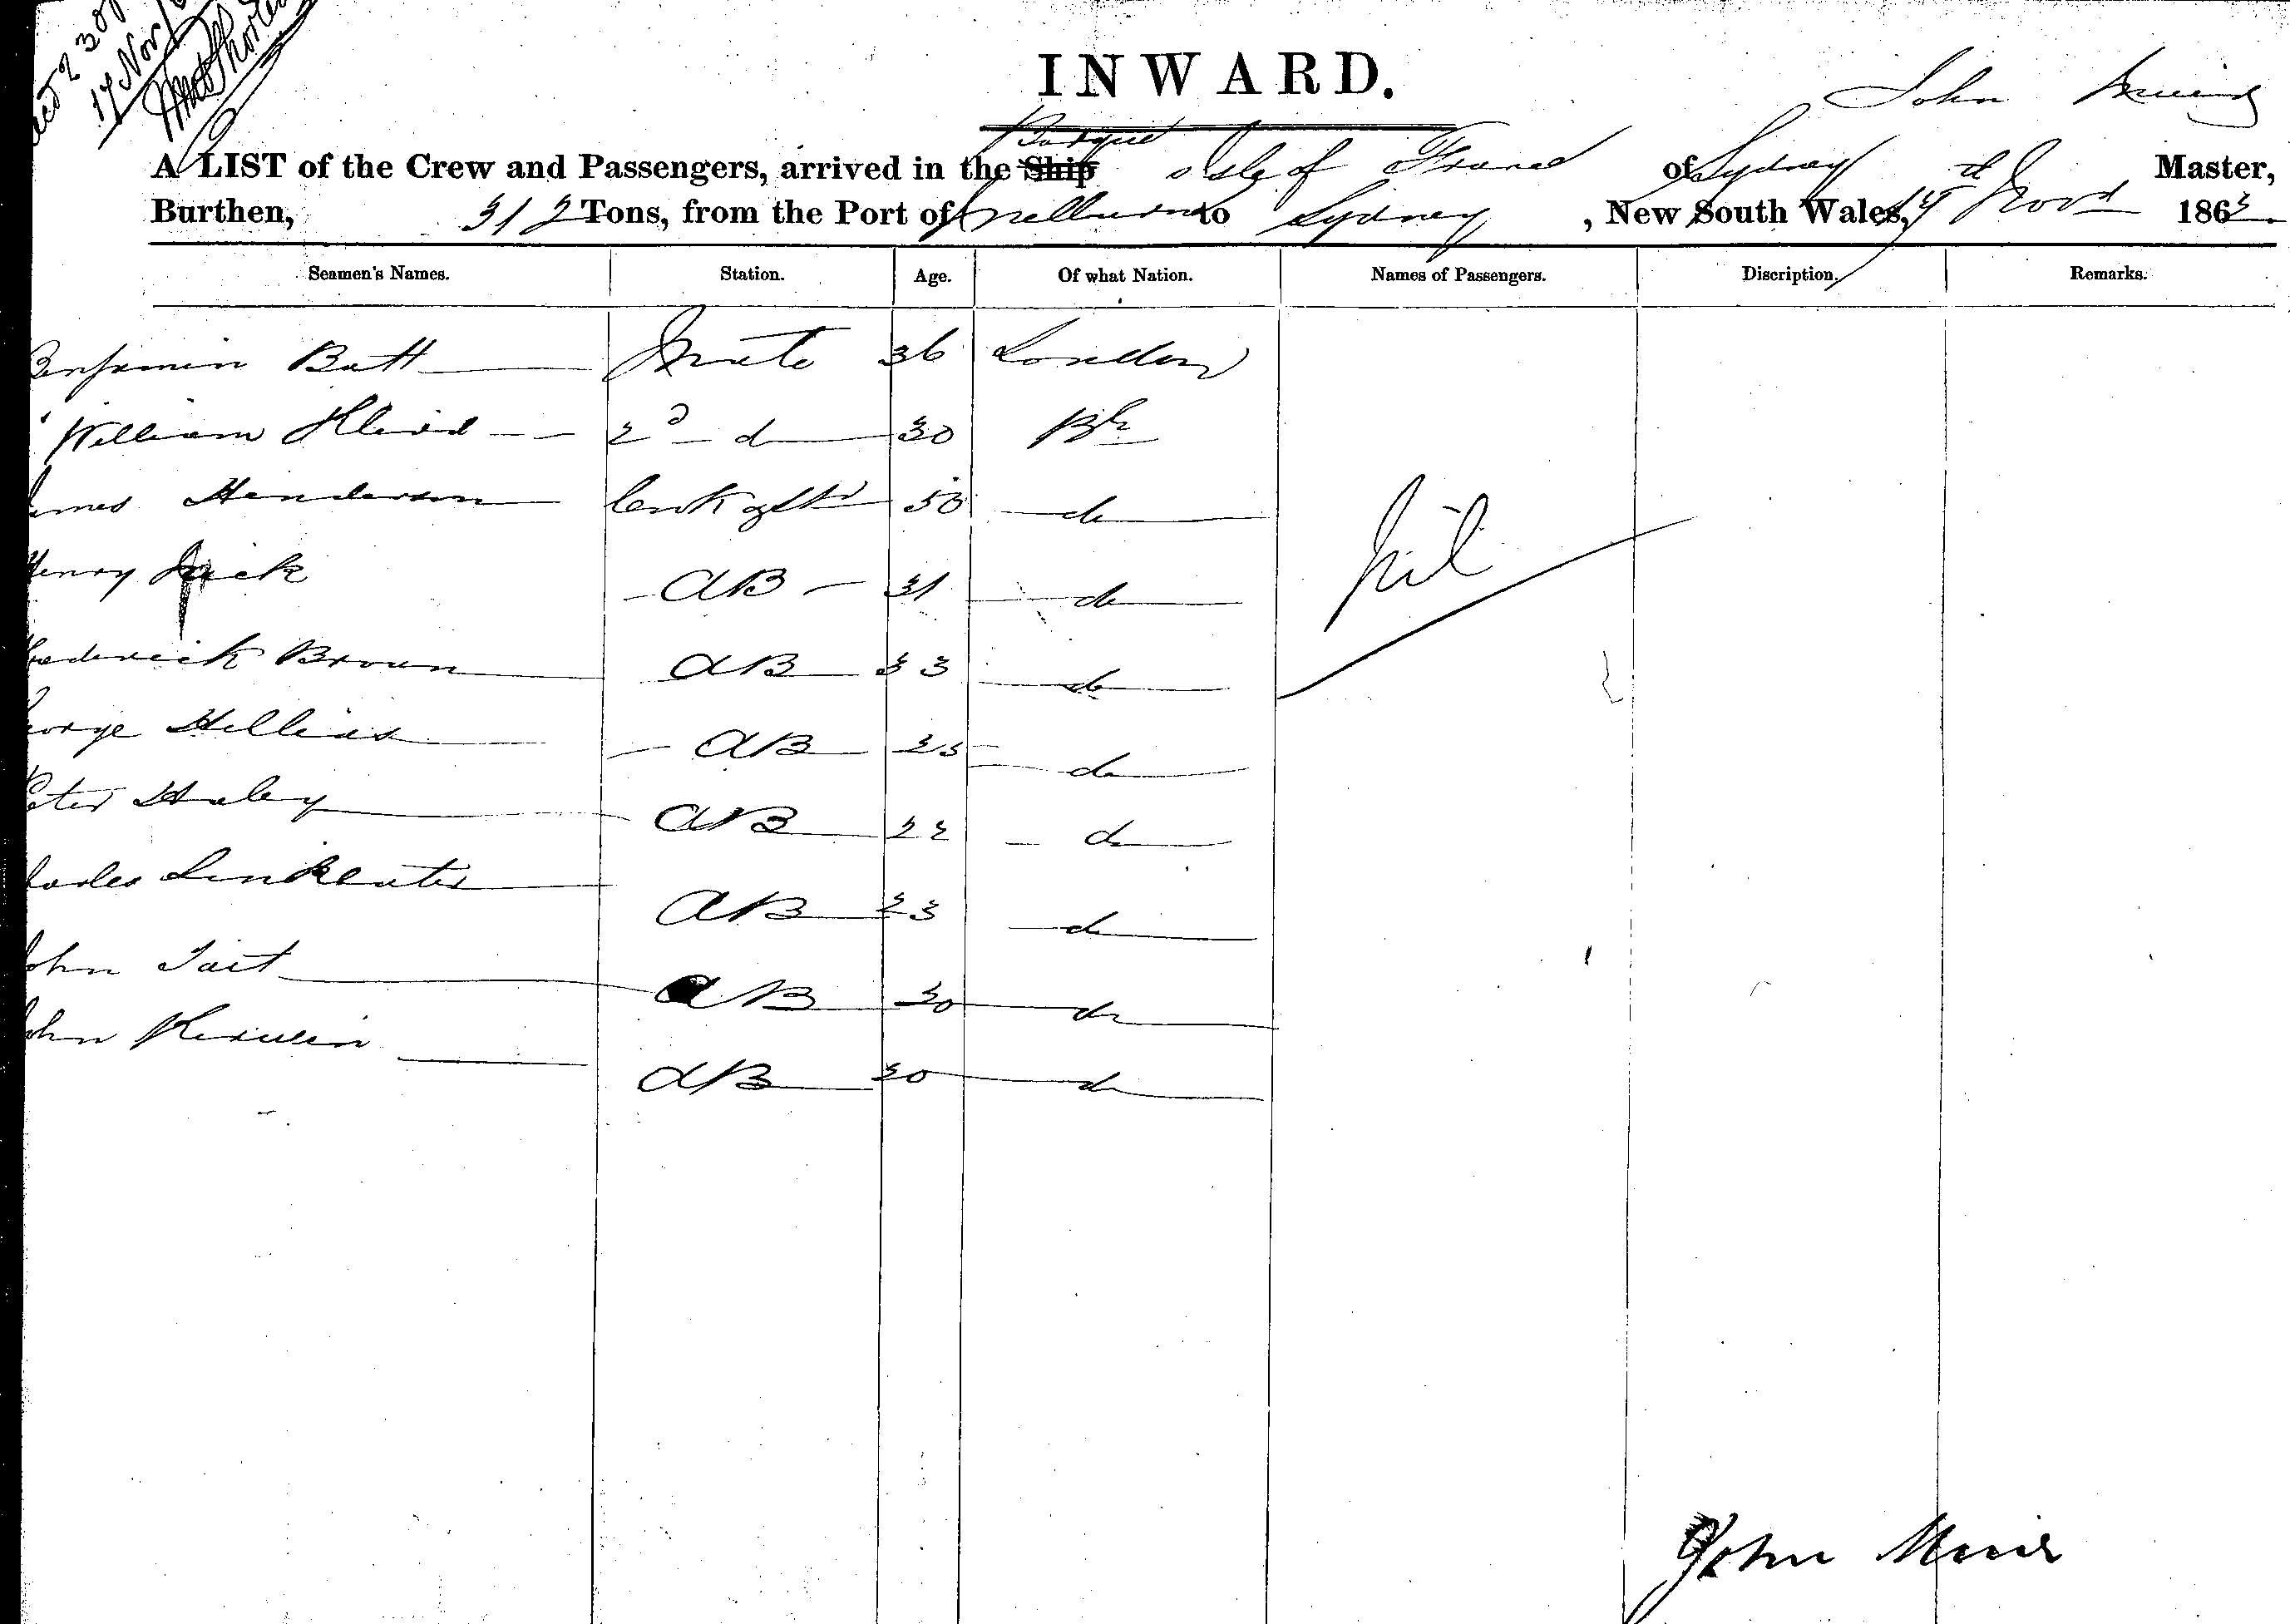 17 Nov/
INWARD.
John
Barque
A LIST of the Crew and Passengers, arrived in the Ship Isle of France of Sydney Master,
Burthen, 312 Tons, from the Port of Melbourne to Sydney, New South Wales, 17th Novr 1863.
Seamen's Names. Station. Age. Of what Nation. Names of Passengers. Discription. Remarks.
Benjamin Batt Mate 36 London
William 2d do 30 Bh
James Henderson Cook &Std 50 do
Henry Jack AB 31 do
Nil
Frederick Brown AB 33 do
George AB do
Peter Haley AB 22 do
Charles Linkeater AB 23 do
John Tait AB 30 do
John Kerwin AB 30 do
John Muir